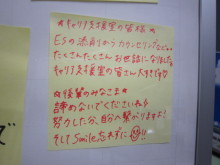 ★キャリア支援室の皆様★
ESの添削やカウンセリングなど
たくさんたくさんお世話になりました
キャリア支援室の皆さん大すきです♡
☆後輩のみなさま☆
諦めないでくださいね♪
努力した分、自分へ繋がりますよ!
そしてSmile忘れずに!!
ズ